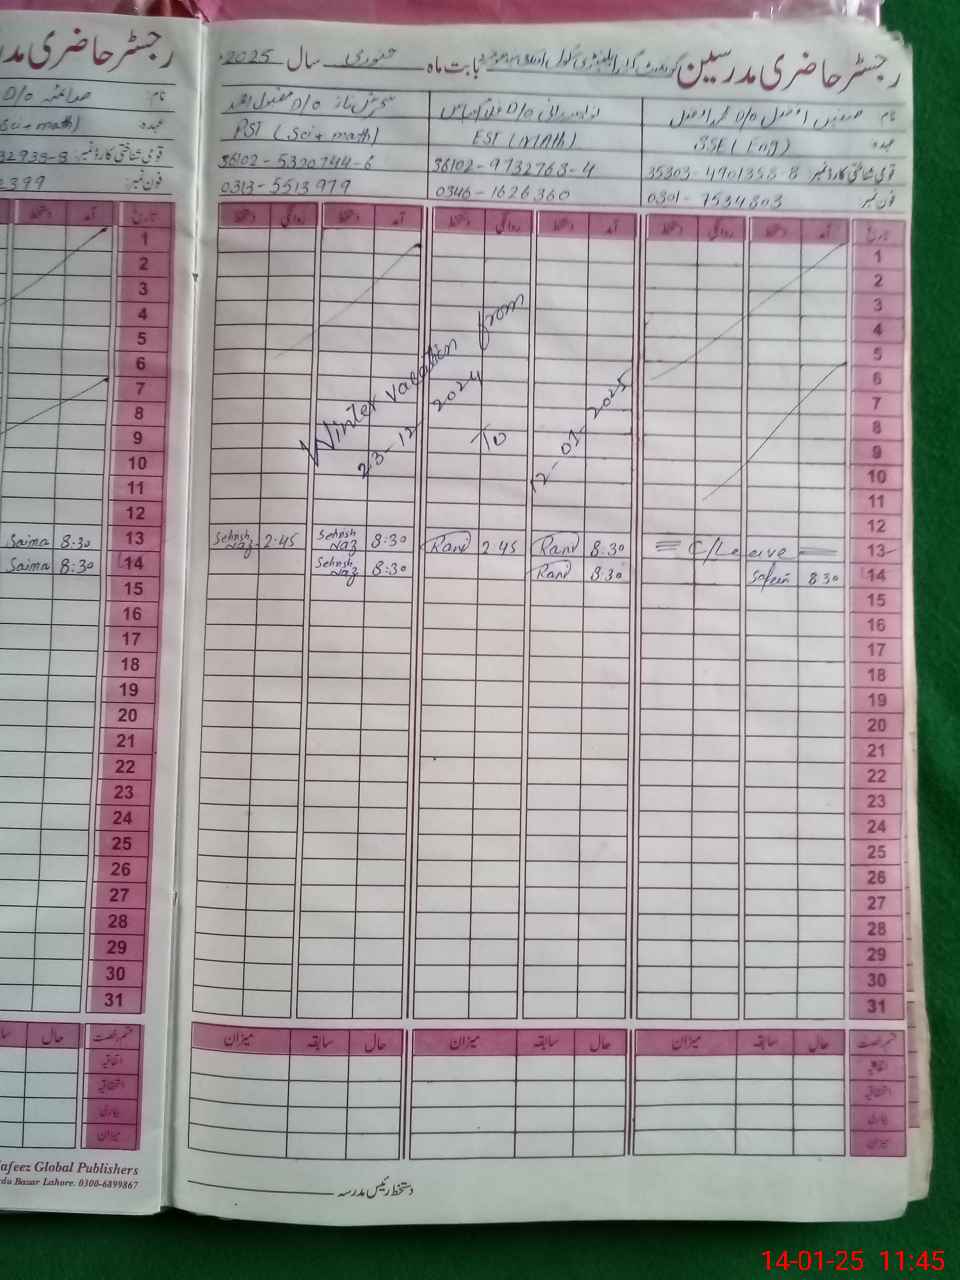 رجسٹر حاضری مدرسین گورنمنٹ گرلز ایلیمنٹری سکول بابت ماہ جنوری سال 2025
نام
سحرش ناز D/o مقبول احمد
عہدہ SSE (Eng) EST (MATH) PST (Sci + math)
قومی شناختی کارڈ نمبر: 35303-4901358-8 36102-9732763-4 36102-5320744-6
فون نمبر 0301-7534803 0346-1626360 0313-5513979
تاریخ آمد دستخط روانگی دستخط آمد دستخط روانگی دستخط آمد دستخط روانگی دستخط
1
2
3
4
5
6
7
8
9
10
11
12
Winter vacation from
23-12-2024
To
12-01-2025
13 C/Leave 8:30 Rani 2:45 Rani 8:30 Sehrish Naz 2:45 Sehrish Naz
14 8:30 8:30 Rani 8:30 Sehrish Naz
15
16
17
18
19
20
21
22
23
24
25
26
27
28
29
30
31
قسم رخصت حال سابقہ میزان حال سابقہ میزان حال سابقہ میزان
اتفاقیہ
استحقاقیہ
بیماری
میزان
دستخط رئیس مدرسہ
رجسٹر حاضری مد
نام:
عہدہ: Sci + math)
قومی شناختی کارڈ نمبر: 32933-8
فون نمبر: 2399
تاریخ آمد دستخط
1
2
3
4
5
6
7
8
9
10
11
12
13 8:30 Saima
14 8:30 Saima
15
16
17
18
19
20
21
22
23
24
25
26
27
28
29
30
31
قسم رخصت حال
اتفاقیہ
استحقاقیہ
بیماری
میزان
afeez Global Publishers
rdu Bazar Lahore. 0300-6899867
14-01-25 11:45